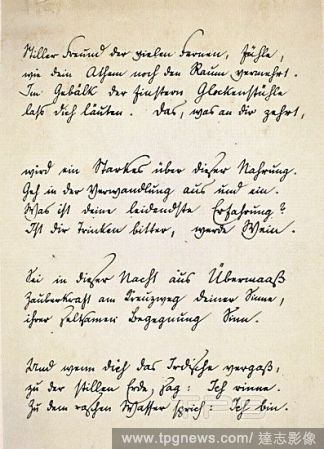 Stiller Freund der vielen Fernen, fühle,
wie dein Athem noch den Raum vermehrt.
Im Gebälk der finstern Glockenstühle
laß dich läuten. Das, was an dir zehrt,
wird ein Starkes über dieser Nahrung.
Geh in der Verwandlung aus und ein.
Was ist deine leidendste Erfahrung?
Ist dir Trinken bitter, werde Wein.
Sei in dieser Nacht aus Übermaaß
Zauberkraft am Kreuzweg deiner Sinne,
ihrer seltsamen Begegnung Sinn.
Und wenn dich das Irdische vergaß,
zu der stillen Erde sag: Ich rinne.
Zu dem raschen Wasser sprich: Ich bin.
www.tpgnews.com/達志影像